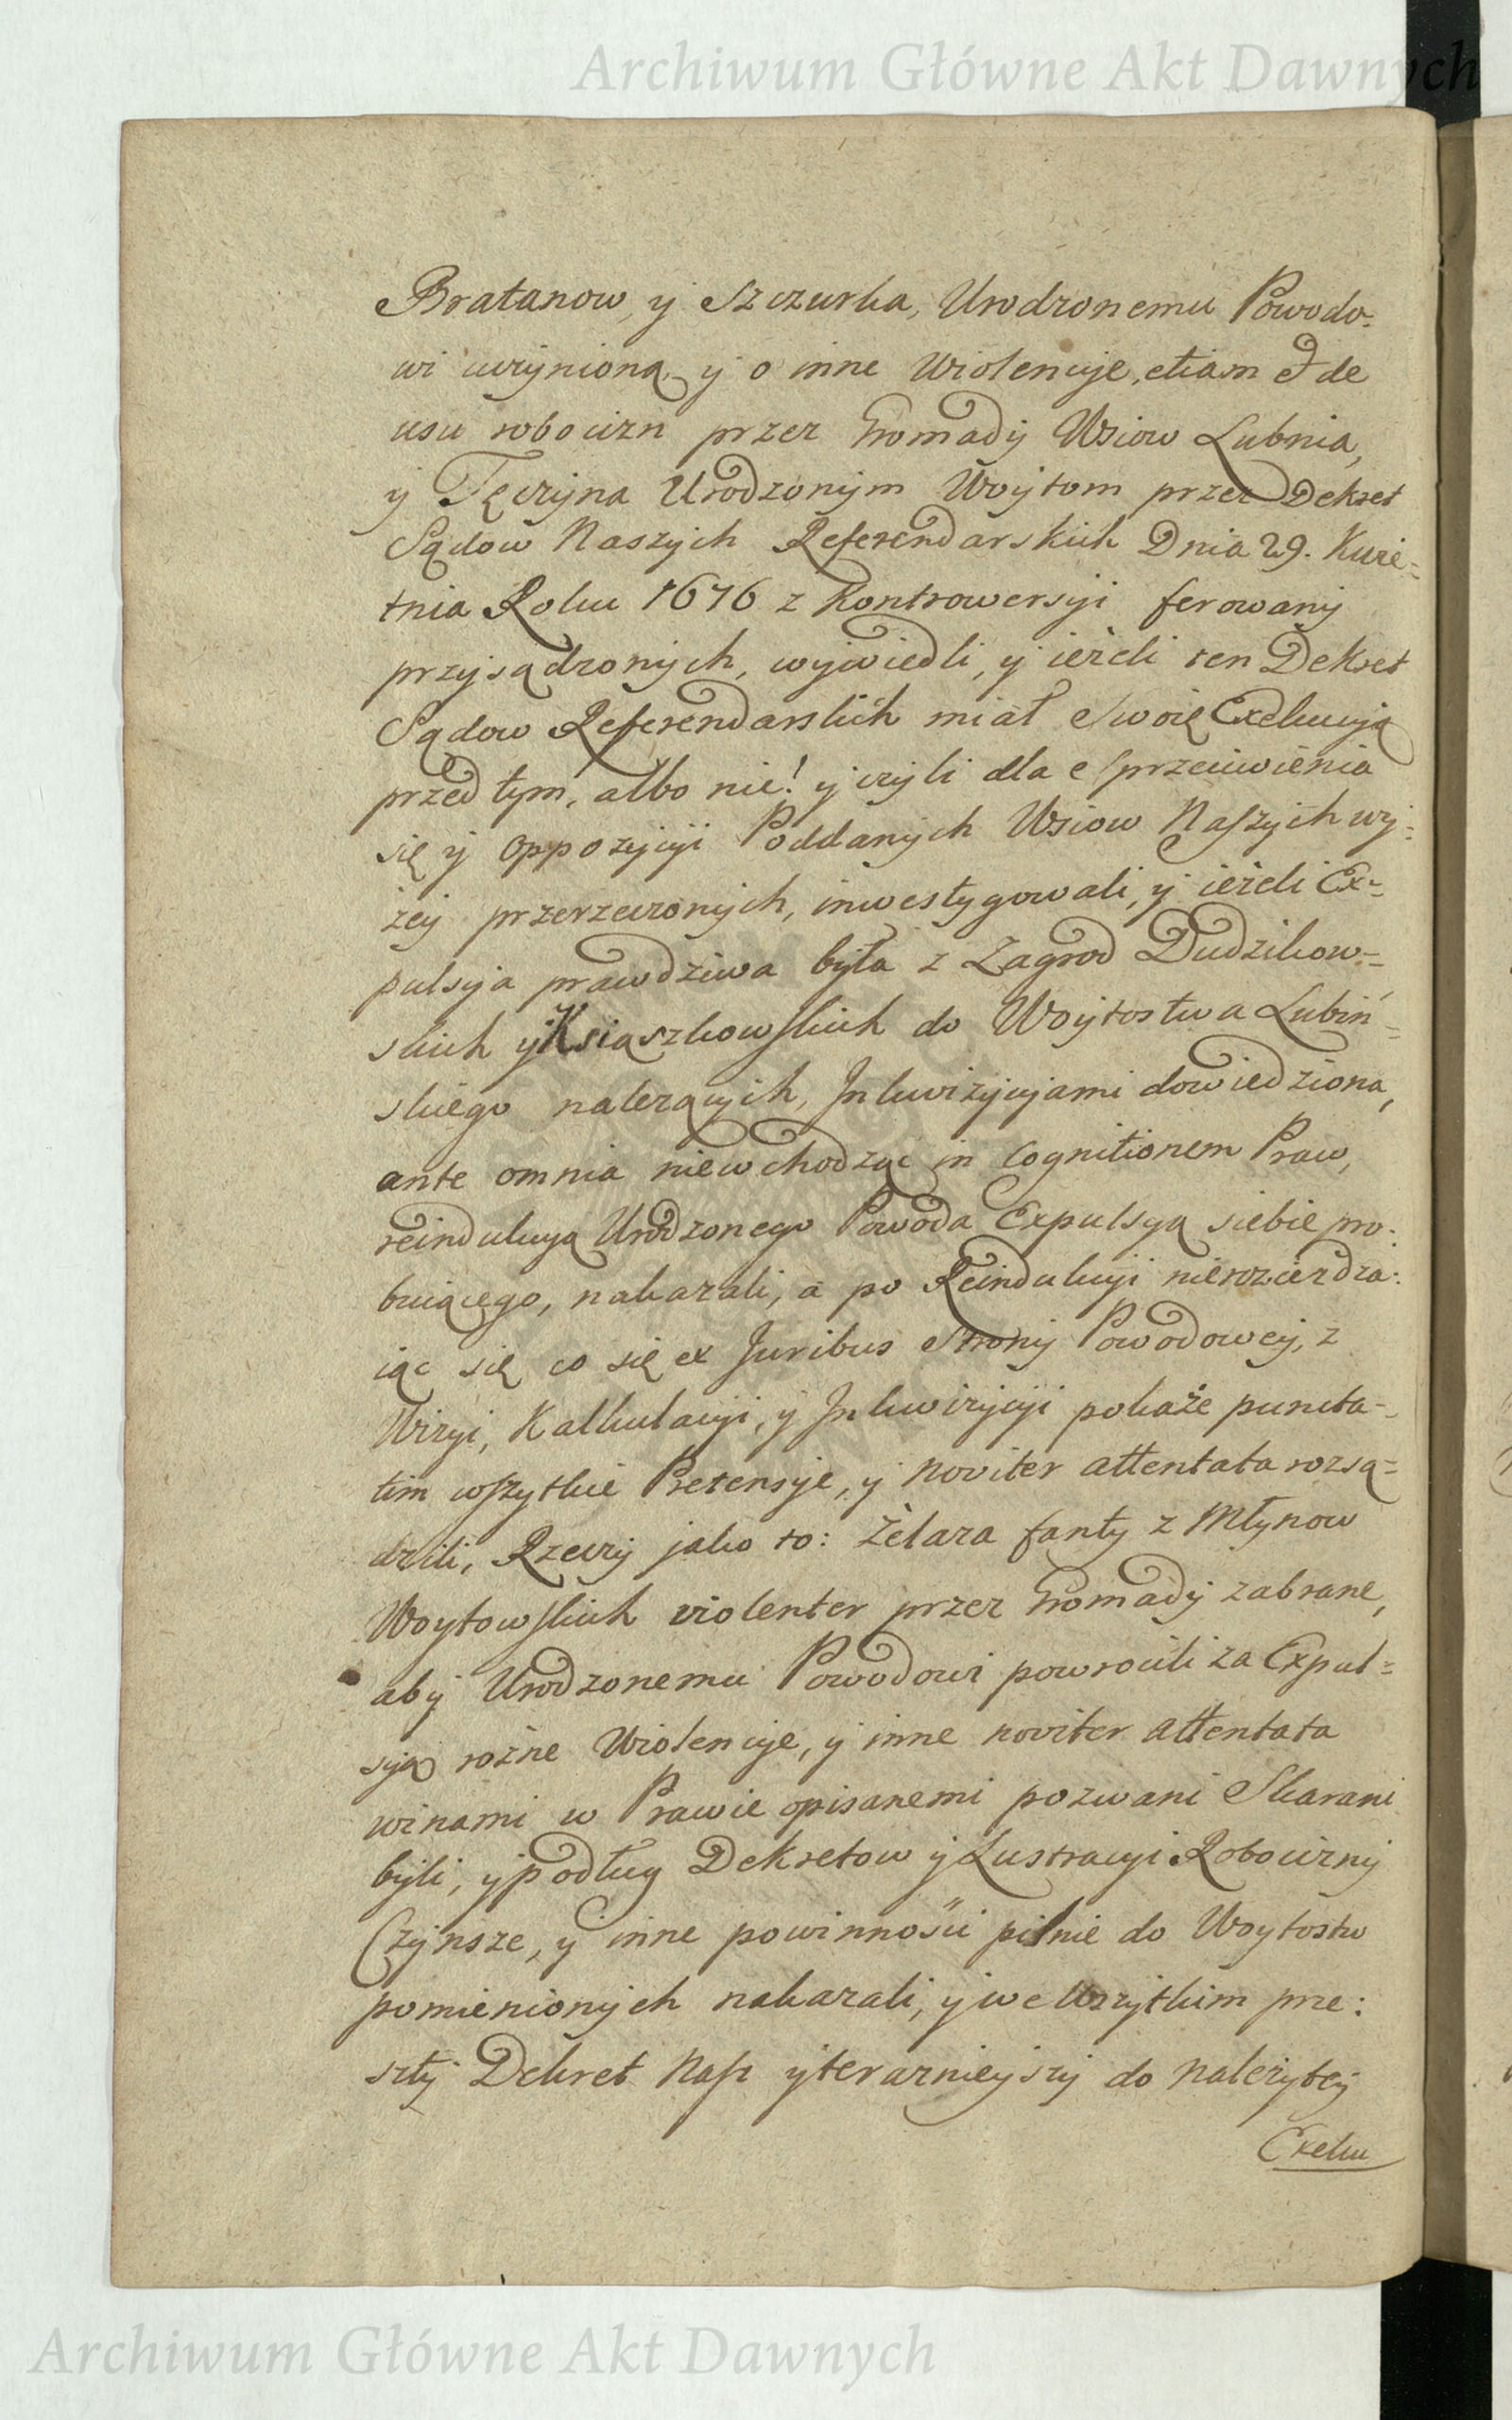 Archiwum Główne Akt Dawnych
Bratanow, y Szczurka, Urodzonemu Powodo:
wi uczynioną, y o inne Wiolencyje, etiam et de
usu robocizn przez Gromady Wsiow Lubnia,
y Tęczyna Urodzonym Woytom przez Dekret
Sądow Naszych Referendarskich Dnia 29. Kwie=
tnia Roku 1676 z Kontrowersyi ferowany
przysądzonych, wywiedli, y ieżeli ten Dekret
Sądow Referendarskich miał Swoię Exekucyą
przed tym, albo nie! y czyli dla Sprzeciwienia
się y oppozycyi Poddanych Wsiow Naszych wy:
żey przerzeczonych, inwestygowali, y ieżeli Ex=
pulsyja prawdziwa była z Zagrod Dudzikow=
skich y Ksiąszkowskich do Woytostwa Lubiń=
skiego należących, Inkwizycyjami dowiedziona,
ante omnia niewchodząc in Cognitionem Praw,
reindukcyą Urodzonego Powoda Expulsyą siebie pro:
buiącego, nakazali, a po Reindukcyi nierozcierdza:
iąc się co się ex Juribus Strony Powodowey, z
Wizyi, Kalkulacyi, y Inkwizycyi pokaże puncta=
tim wszytkie Pretensyje, y noviter attentata rozsą=
dzili, Rzeczy jako to: Żelaza fanty z Młynow
Woytowskich violenter przez Gromady zabrane,
aby Urodzonemu Powodowi powrocili za Expul=
syją rożne Wiolencyje, y inne noviter attentata
winami w Prawie opisanemi pozwani Skarani
byli, y podług Dekretow y Lustracyi Robocizny
Czynsze, y inne powinności pilnie do Woytostw
pomienionych nakazali, y we Wszytkim prze:
szły Dekret Nasz y teraznieyszy do należytey
Exeku
Archiwum Główne Akt Dawnych